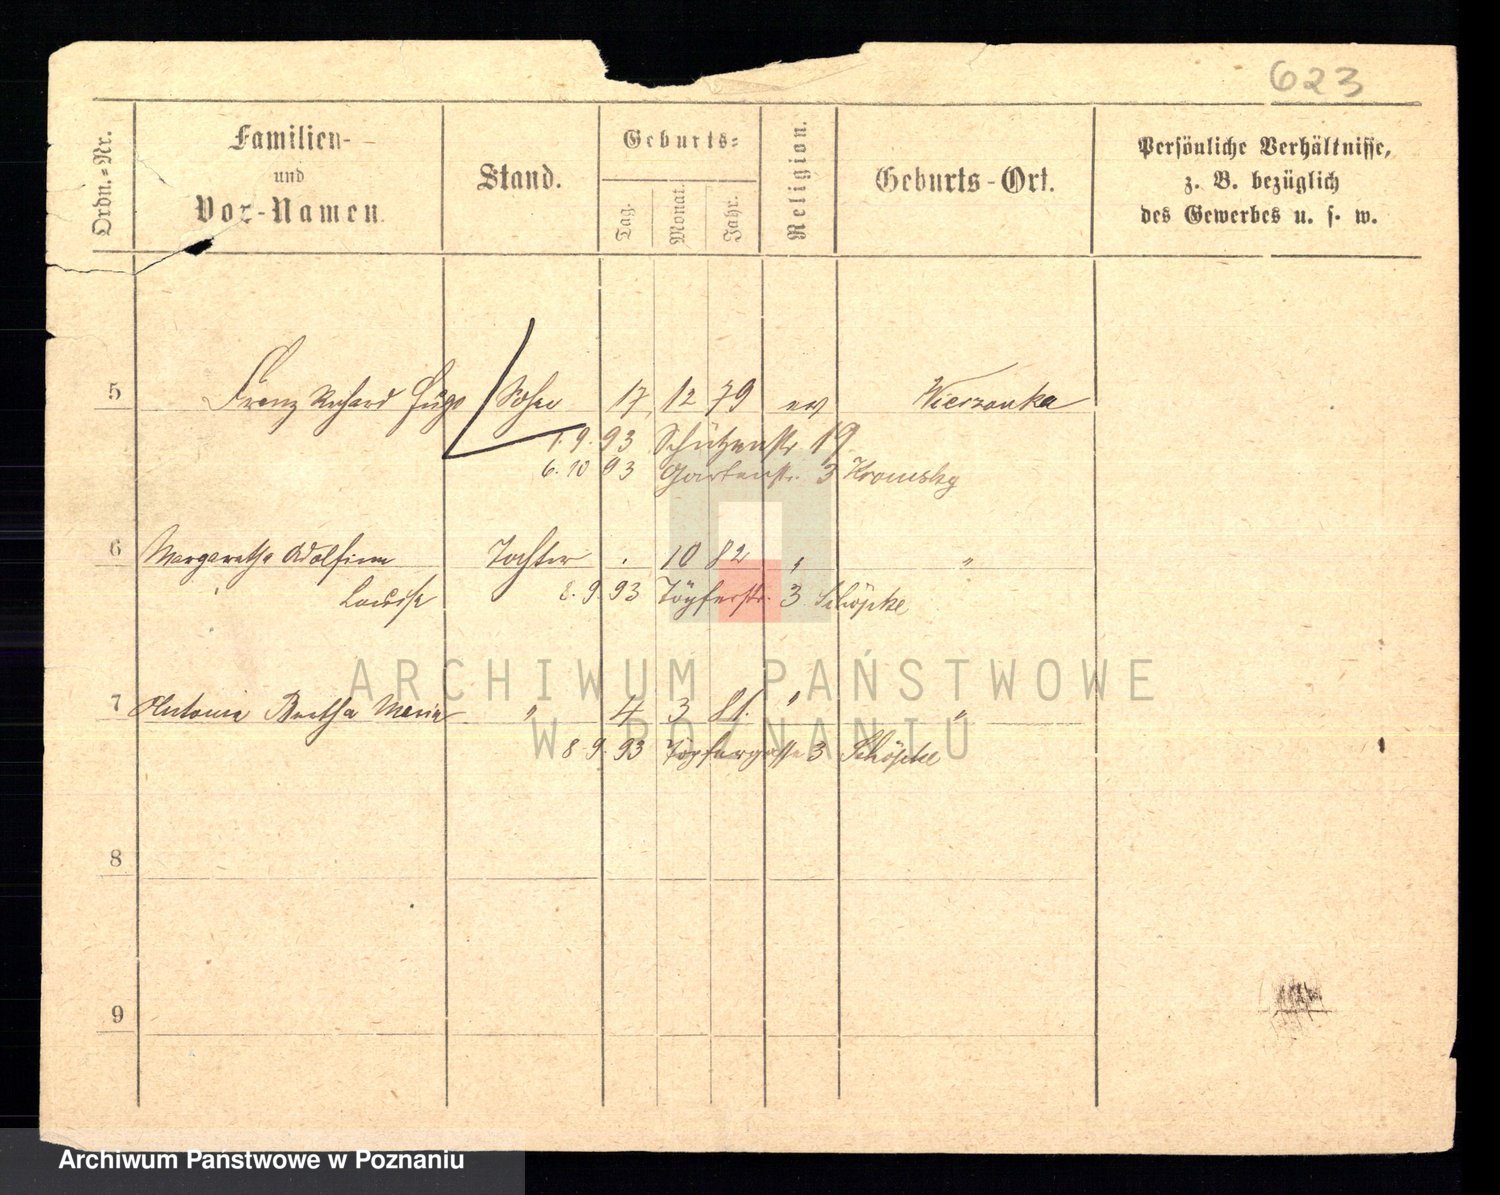 623
Ordn.-Nr.
Familien-
und
Vor-Namen.
Stand.
Geburts-
Tag.
Monat.
Jahr.
Religion.
Geburts-Ort.
Persönliche Verhältnisse,
z. B. bezüglich
des Gewerbes u. s. w.
5 Franz Richard Hugo Sohn 17 12 79 ev Wierzonka
1. 9. 93 Schützenstr. 19.
6. 10 93 Gartenstr. 3 Kromsky
6 Margarethe Adolfine Tochter . 10 82 " "
Louise 8. 9. 93 Töpferstr. 3 Schöpke
7 Antonie Bertha Marie " 4 3 81. " "
8. 9. 93 Töpfergasse 3 Schöpke
8
9
ARCHIWUM PAŃSTWOWE
W POZNANIU
Archiwum Państwowe w Poznaniu